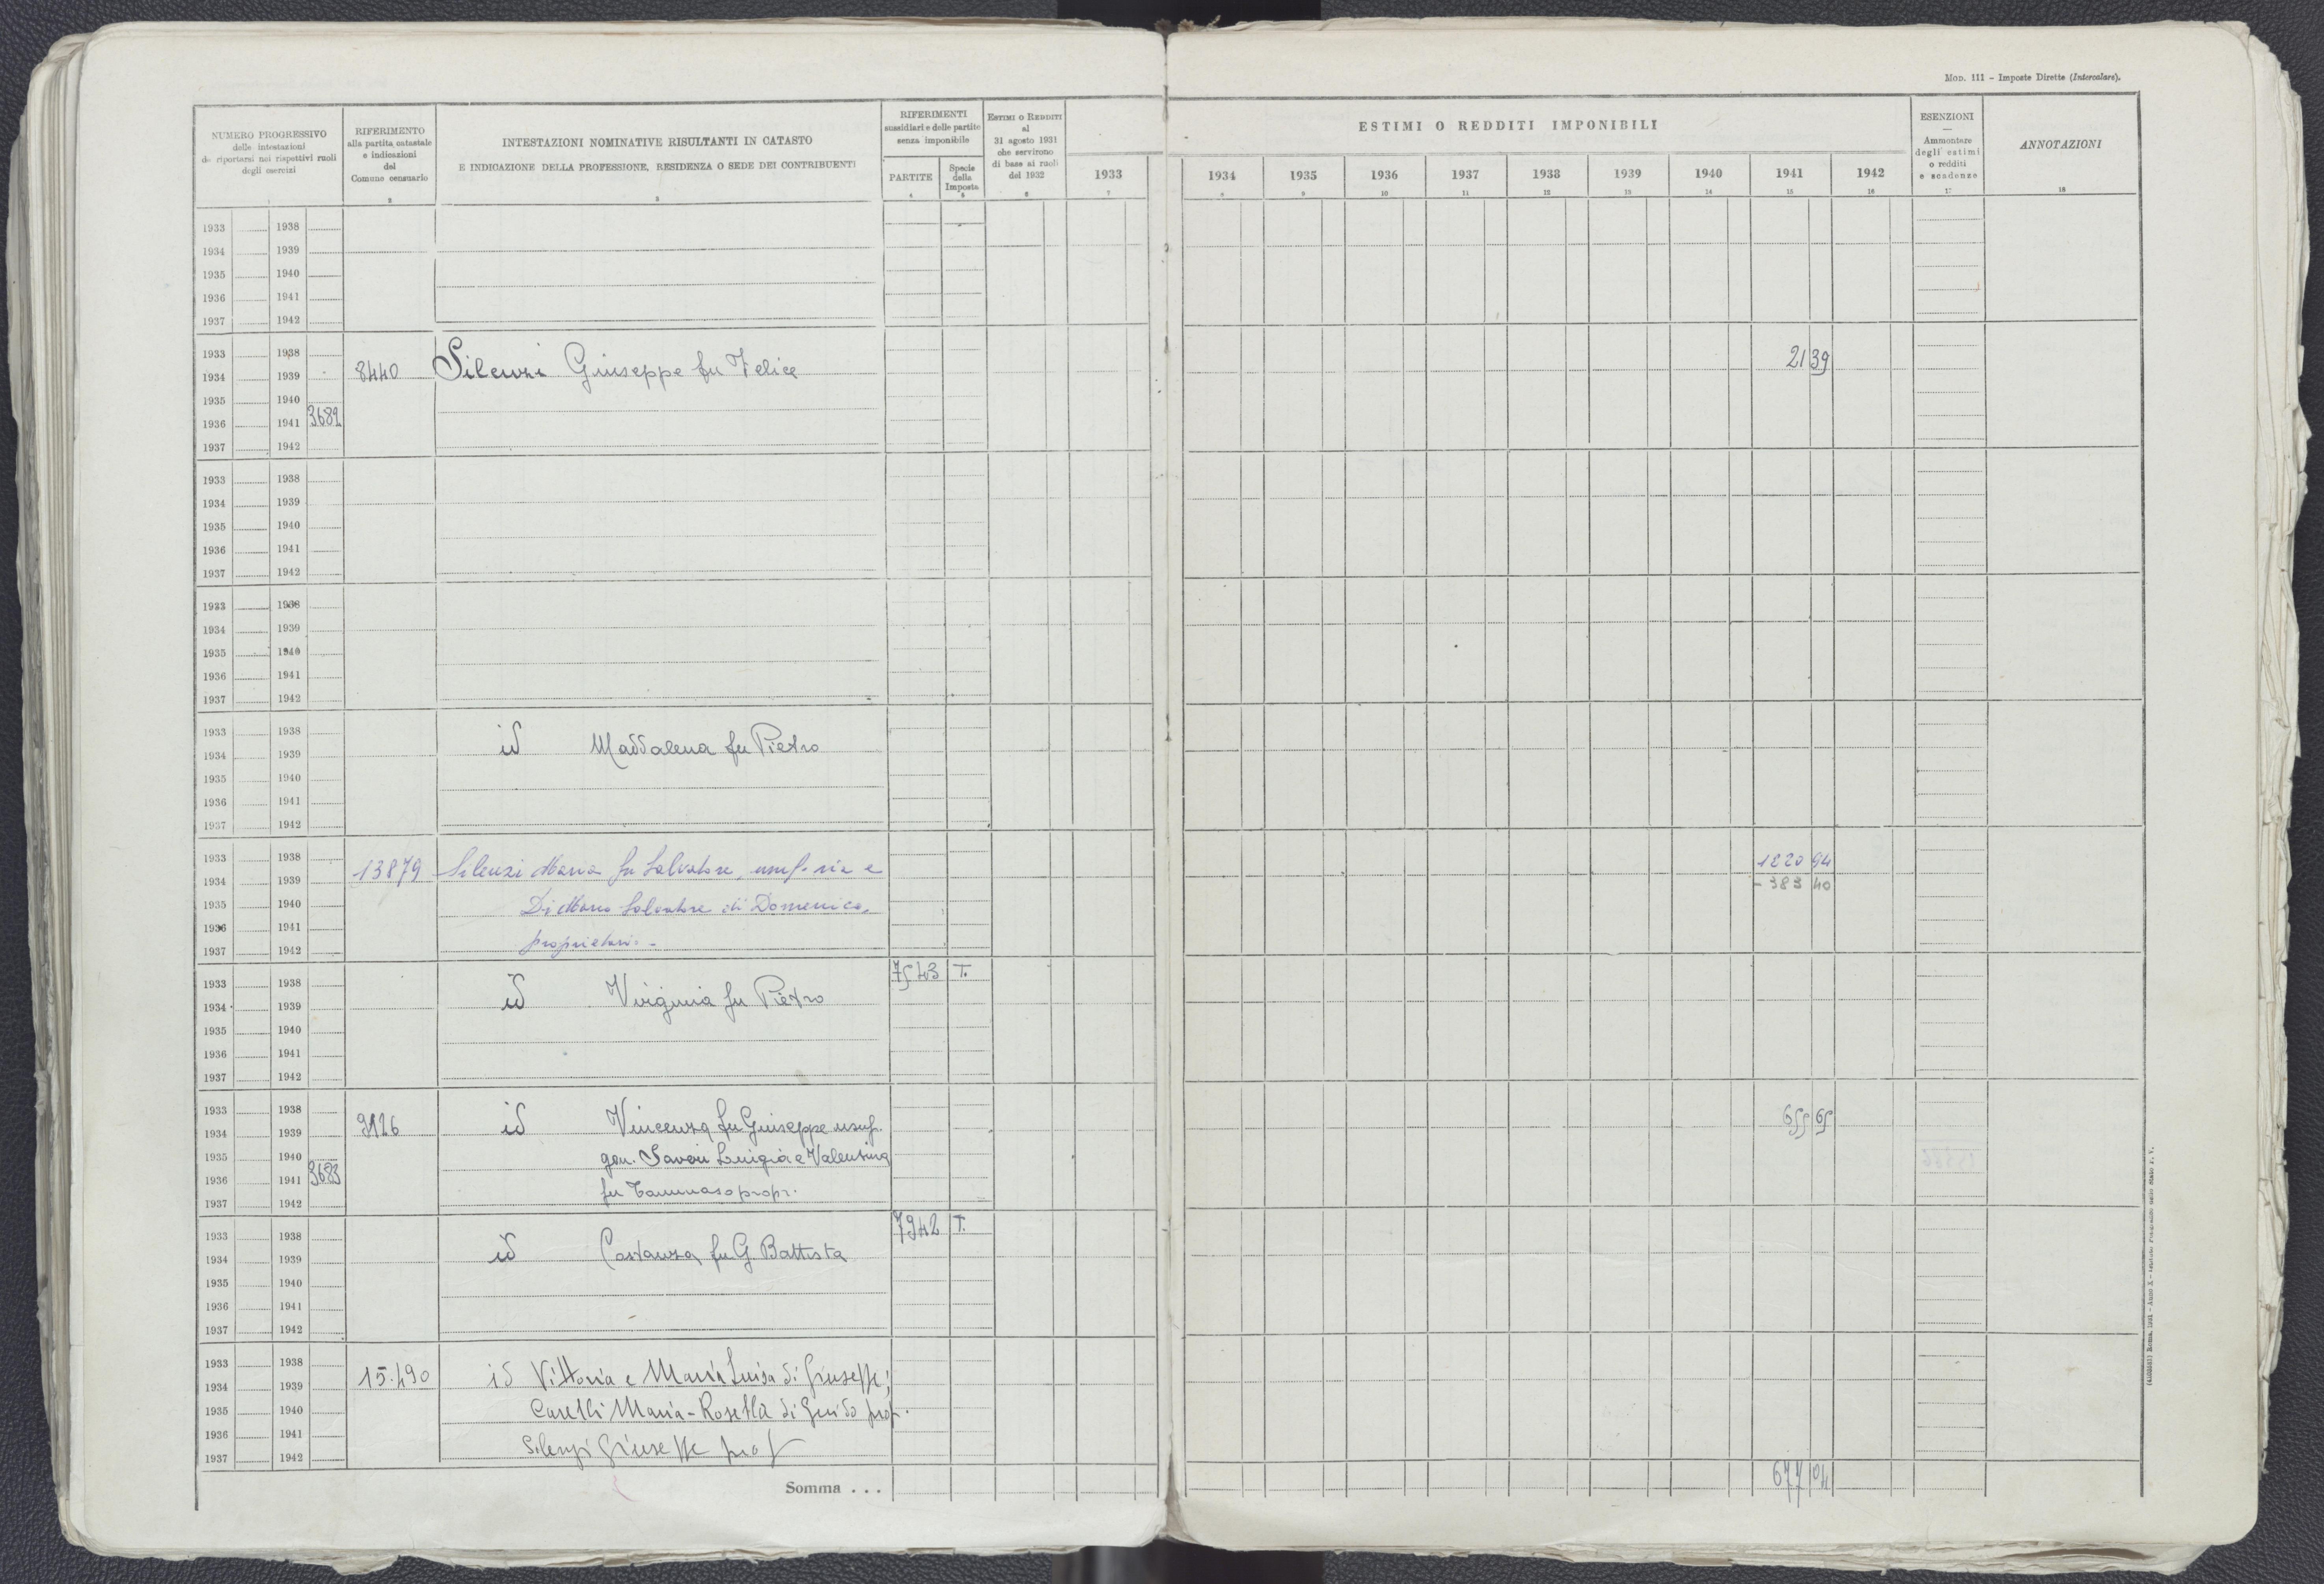 MOD. 111 - Imposte Dirette (Intercalare).
NUMERO PROGRESSIVO
delle intestazioni
da riportarsi nei rispettivi ruoli
degli esercizi
RIFERIMENTO
alla partita catastale
e indicazioni
del
Comune censuario
INTESTAZIONI NOMINATIVE RISULTANTI IN CATASTO
E INDICAZIONE DELLA PROFESSIONE, RESIDENZA O SEDE DEI CONTRIBUENTI
RIFERIMENTI
sussidiari e delle partite
senza imponibile
PARTITE
Specie
della
Imposta
ESTIMI O REDDITI
al
31 agosto 1931
che servirono
di base ai ruoli
del 1932
ESTIMI O REDDITI IMPONIBILI
1933 1934 1935 1936 1937 1938 1939 1940 1941 1942
ESENZIONI
Ammontare
degli estimi
o redditi
e scadenze
ANNOTAZIONI
1 2 3 4 5 6 7 8 9 10 11 12 13 14 15 16 17 18
1933 1938
1934 1939
1935 1940
1936 1941
1937 1942
1933 1938
1934 1939 8440 Silenzi Giuseppe fu Felice 21 39
1935 1940
1936 1941 3682
1937 1942
1933 1938
1934 1939
1935 1940
1936 1941
1937 1942
1933 1938
1934 1939
1935 1940
1936 1941
1937 1942
1933 1938
1934 1939 id Maddalena fu Pietro
1935 1940
1936 1941
1937 1942
1933 1938 1220 94
1934 1939 13879 Silenzi Maria fu Salvatore, usuf. ria e - 383 40
1935 1940 Di Mario Salvatore di Domenico,
1936 1941
1937 1942 proprietario -
7543 T.
1933 1938
1934 1939 id Virginia fu Pietro
1935 1940
1936 1941
1937 1942
1933 1938
1934 1939 9126 id Vincenza fu Giuseppe usuf. 655 65
1935 1940 gen. Savoi Luigia e Valentina
1936 1941 3683
1937 1942 fu Tommaso propr.
7942 T.
1933 1938
1934 1939 id Costanza fu G Battista
1935 1940
1936 1941
1937 1942
1933 1938
1934 1939 15.490 id Vittoria e Maria Luisa di Giuseppe;
1935 1940 Carelli Maria-Rosella di Guido prop.
1936 1941
1937 1942 Silenzi Giuseppe prop
Somma . . . 677 04